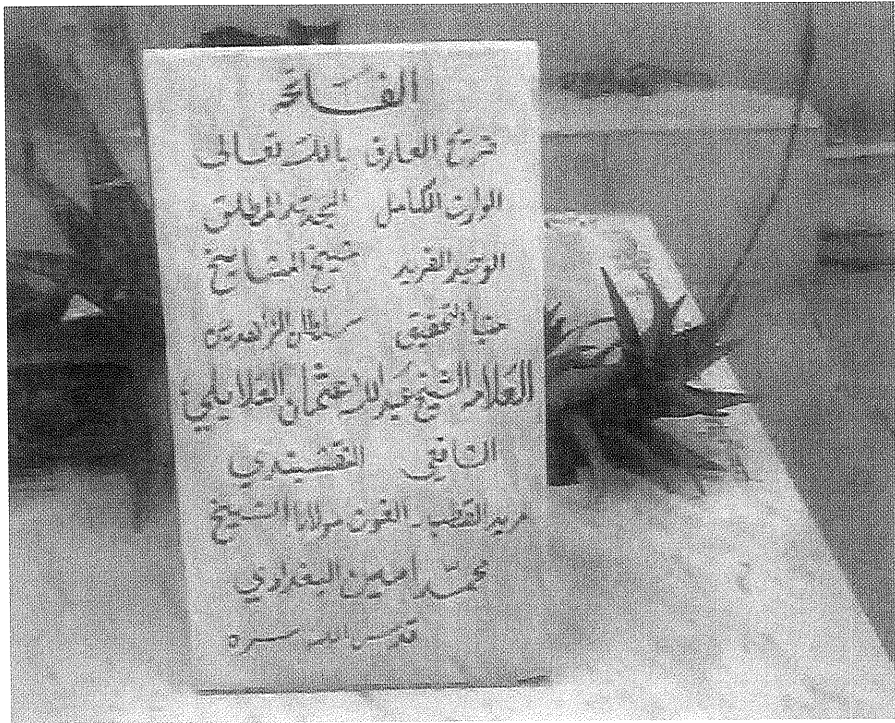 الفاتحة
ضريح العارف بالله تعالى
الوارث الكامل المجتهد المطلق
الوحيد الفريد شيخ المشايخ
التحقيق سلطان الزاهدين
العلامة الشيخ عبد الله عثمان القلايلي
الشافعي النقشبندي
مريد القطب الغوث مولانا الشيخ
محمد امين البغدادي
قدس الله سره